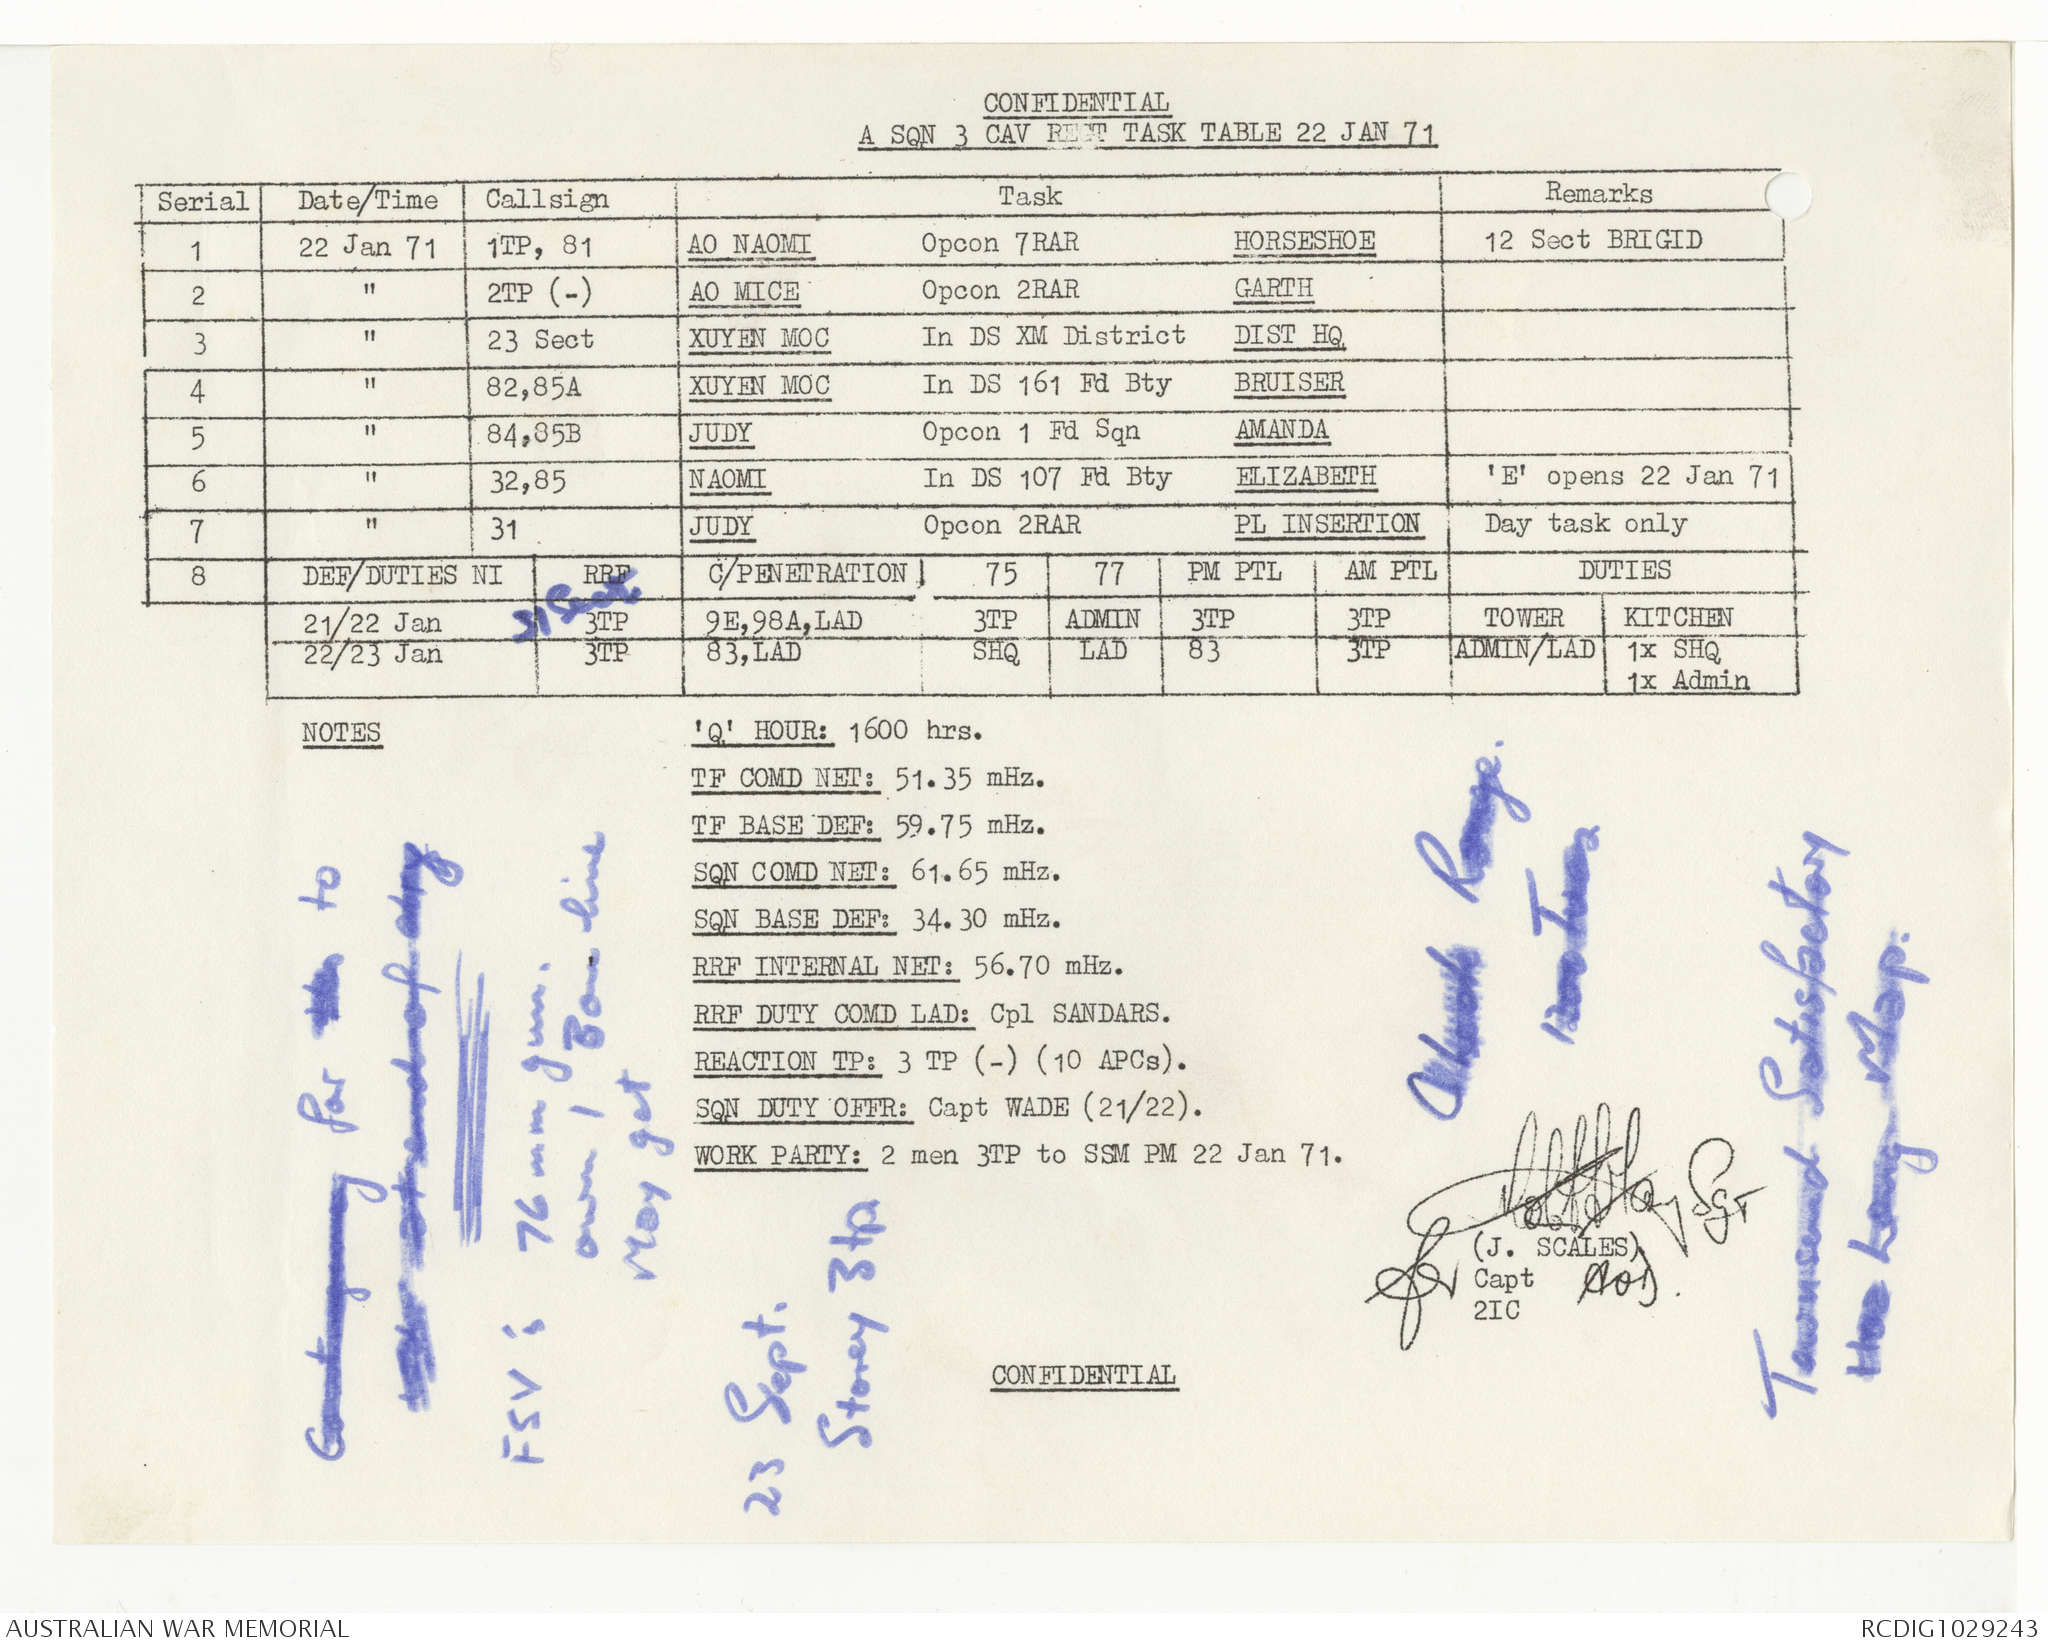 CONFIDENTIAL
A SQN 3 CAV REGT TASK TABLE 22 JAN 71
Serial Date/Time Callsign Task Remarks
1 22 Jan 71 1TP, 81 AO NAOMI Opcon 7RAR HORSESHOE 12 Sect BRIGID
2 " 2TP (-) AO MICE Opcon 2RAR GARTH
3 " 23 Sect XUYEN MOC In DS XM District DIST HQ
4 " 82,85A XUYEN MOC In DS 161 Fd Bty BRUISER
5 " 84,85B JUDY Opcon 1 Fd Sqn AMANDA
6 " 32,85 NAOMI In DS 107 Fd Bty ELIZABETH 'E' opens 22 Jan 71
7 " 31 JUDY Opcon 2RAR PL INSERTION Day task only
8 DEF/DUTIES NI RRF C/PENETRATION 75 77 PM PTL AM PTL DUTIES
31 Sect
21/22 Jan 3TP 9E,98A,LAD 3TP ADMIN 3TP 3TP TOWER KITCHEN
22/23 Jan 3TP 83,LAD SHQ LAD 83 3TP ADMIN/LAD 1x SHQ
1x Admin
NOTES
'Q' HOUR: 1600 hrs.
TF COMD NET: 51.35 mHz.
TF BASE DEF: 59.75 mHz.
SQN COMD NET: 61.65 mHz.
SQN BASE DEF: 34.30 mHz.
RRF INTERNAL NET: 56.70 mHz.
RRF DUTY COMD LAD: Cpl SANDARS.
REACTION TP: 3 TP (-) (10 APCs).
SQN DUTY OFFR: Capt WADE (21/22).
WORK PARTY: 2 men 3TP to SSM PM 22 Jan 71.
for to
FSV's 76 mm gun.
own 1 line
May get
23 Sept.
Storey 3tp
Range.
Townsend Satisfactory
Hoa Long Map.
Sgt
(J. SCALES)
for Capt
2IC
CONFIDENTIAL
AUSTRALIAN WAR MEMORIAL RCDIG1029243